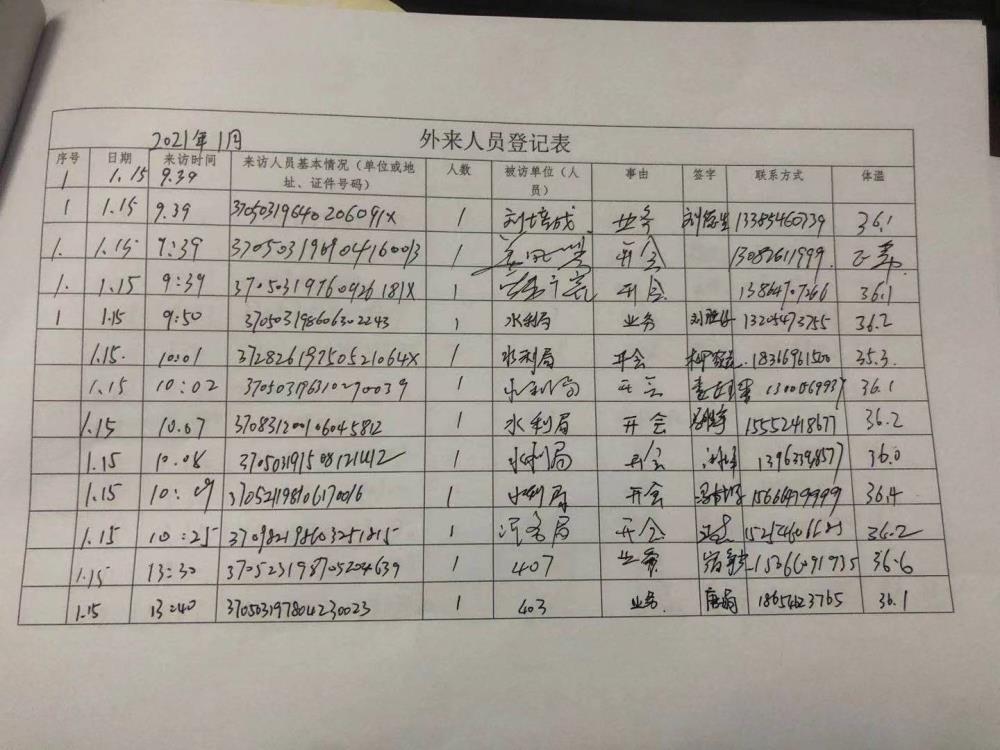 2021年1月 外来人员登记表
序号 日期 来访时间 来访人员基本情况（单位或地址、证件号码） 人数 被访单位（人员） 事由 签字 联系方式 体温
1 1.15 9.39
1 1.15 9.39 37050319640206091X 1 刘培成 业务 13385460739 36.1
1. 1.15 9:39 370503196904160013 1 开会 13082611999 正常
1. 1.15 9:39 37050319760926181X 1 开会 13864707266 36.1
1 1.15 9:50 370503198606302243 1 水利局 业务 13205473755 36.2
1.15. 10:01 37282619750521064X 1 水利局 开会 18366961500 35.3.
1.15 10:02 370503196310290039 1 水利局 开会 36.1
1.15 10.07 370831200106045812 1 水利局 开会 15552418677 36.2
1.15 10.08 1 水利局 开会 36.0
1.15 10:09 1 水利局 开会 15666919999 36.4
1.15 10:25 370982198603251815 1 河务局 开会 36.2
1.15 13:30 370523198705204639 1 407 业务 15366091935 36.6
1.15 13:40 370503197804230023 1 403 业务 唐娟 18654623765 36.1